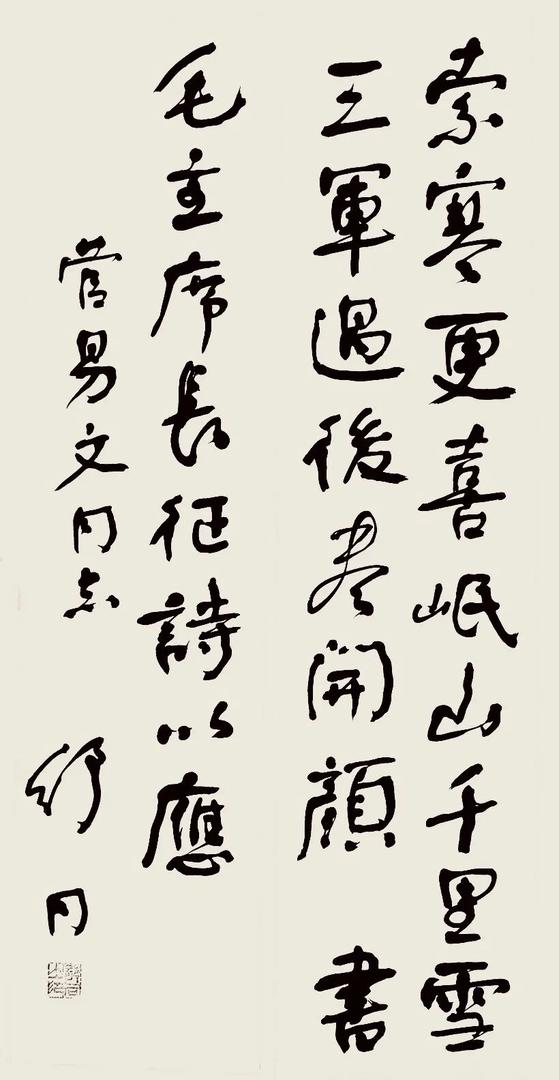 索寒更喜岷山千里雪
三軍過後尽開顏 書
毛主席長征詩以應
管易文同志 舒同